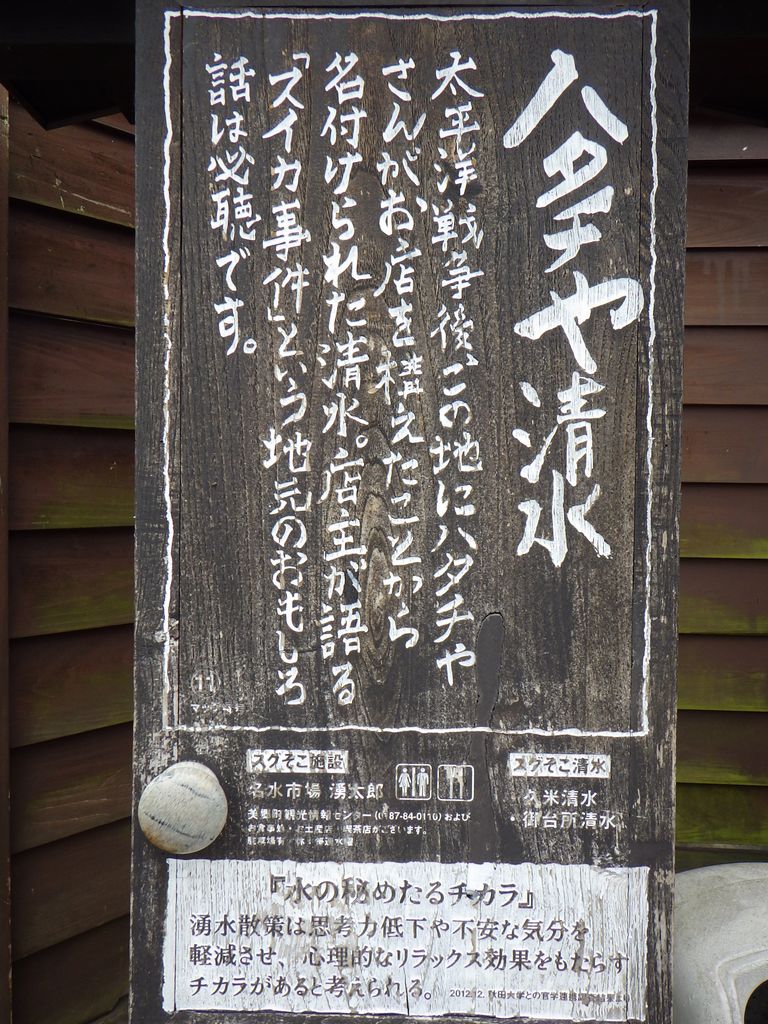 ハタチや清水
太平洋戦争後、この地にハタチや
さんがお店を構えたことから
名付けられた清水。店主が語る
「スイカ事件」という地元のおもしろ
話は必聴です。
スグそこ清水
・久米清水
・御台所清水
スグそこ施設
名水市場 湧太郎
美郷町観光情報センター(0187-84-0110)および
お食事処・お土産店・喫茶店がございます。
『水の秘めたるチカラ』
湧水散策は思考力低下や不安な気分を
軽減させ、心理的なリラックス効果をもたらす
チカラがあると考えられる。
2012.12. 秋田大学との官学連携調査結果より